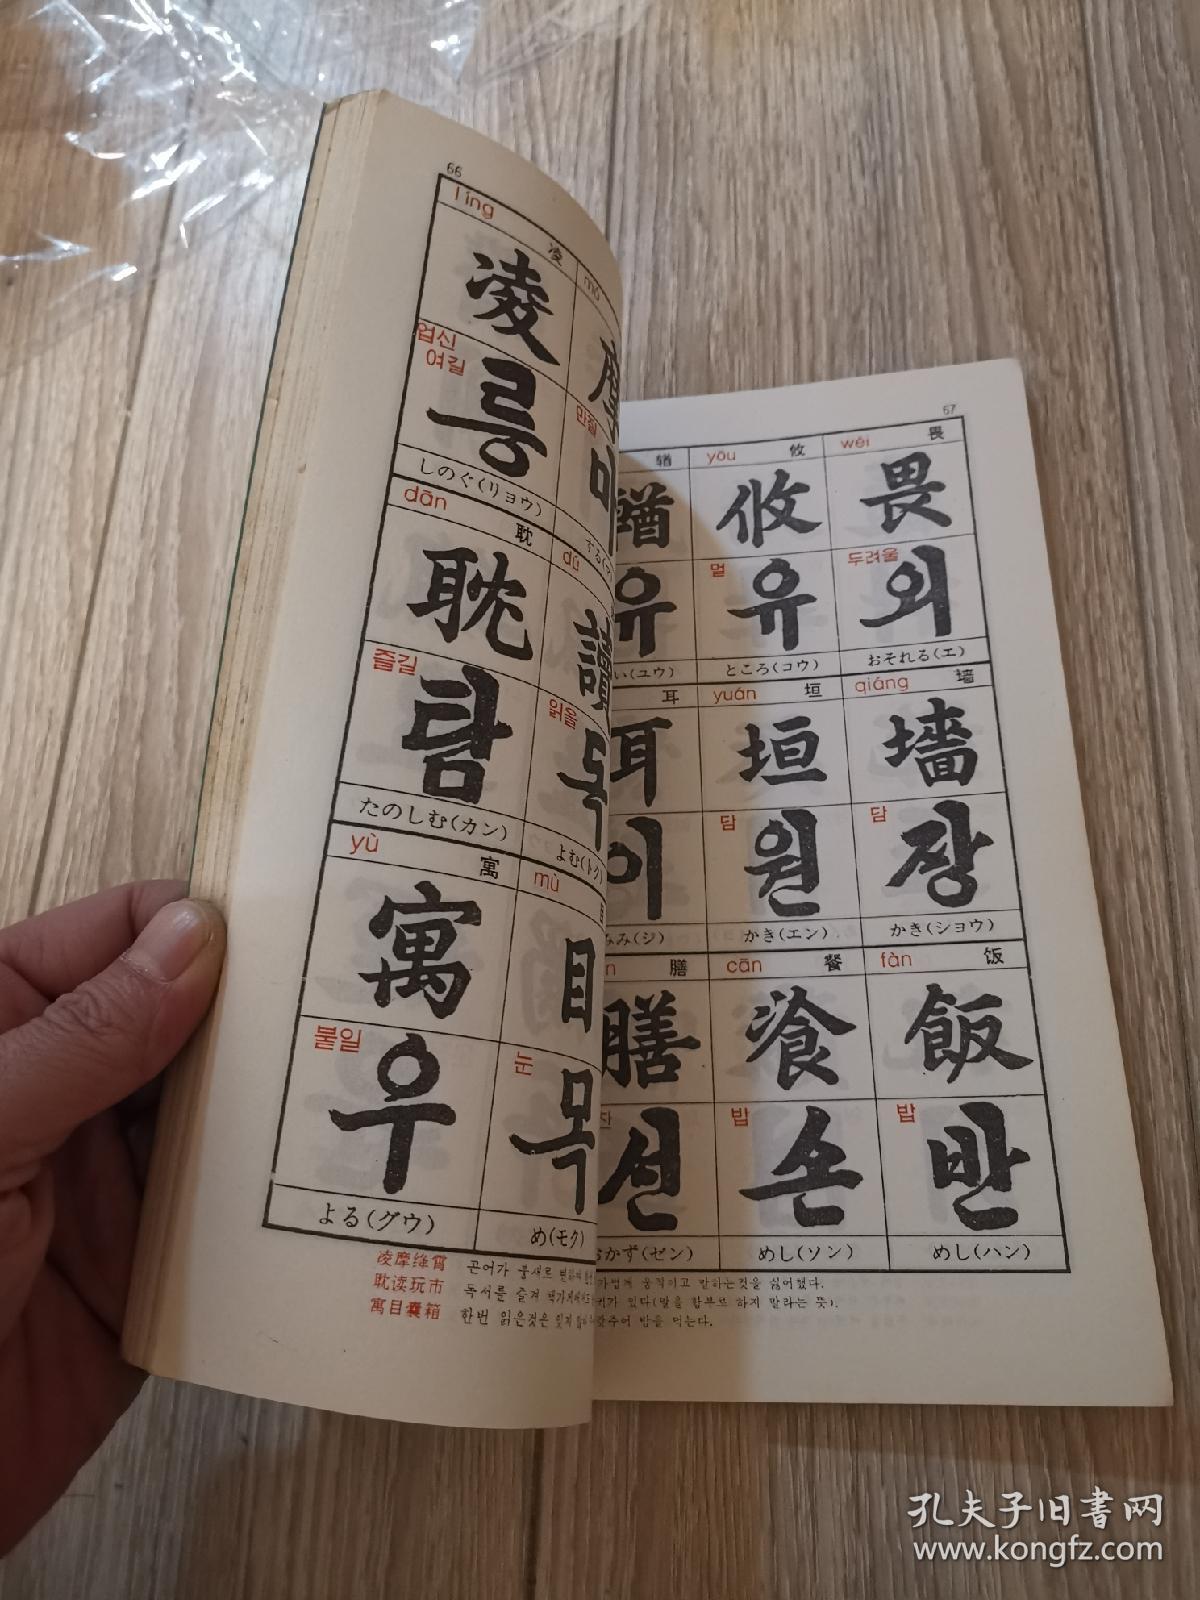 66
líng 凌
mó
凌
摩
업신
여길
릉
만질
마
しのぐ(リョウ)
dān 耽
dú
耽
讀
즐길
탐
읽을
독
たのしむ(カン)
よむ(トク)
yù 寓
mù 目
寓
目
붙일
우
눈
목
よる(グウ)
め(モク)
凌摩绛霄 곤어가 붕새로
耽读玩市 독서를 즐겨
寓目囊箱 한번 읽은것은 잊지
67
輶
yōu 攸
wèi 畏
輶
攸
畏
유
멀
유
두려울
외
い(ユウ)
ところ(コウ)
おそれる(エ)
耳
yuán 垣
qiáng 墙
耳
垣
墻
이
담
원
담
장
みみ(ジ)
かき(エン)
かき(ショウ)
膳
cān 餐
fàn 饭
膳
飡
飯
선
밥
손
밥
반
おかず(ゼン)
めし(ソン)
めし(ハン)
움직이고 말하는것을 싫어했다.
가 있다(말을 함부로 하지 말라는 뜻).
밥을 먹는다.
孔夫子旧书网
www.kongfz.com